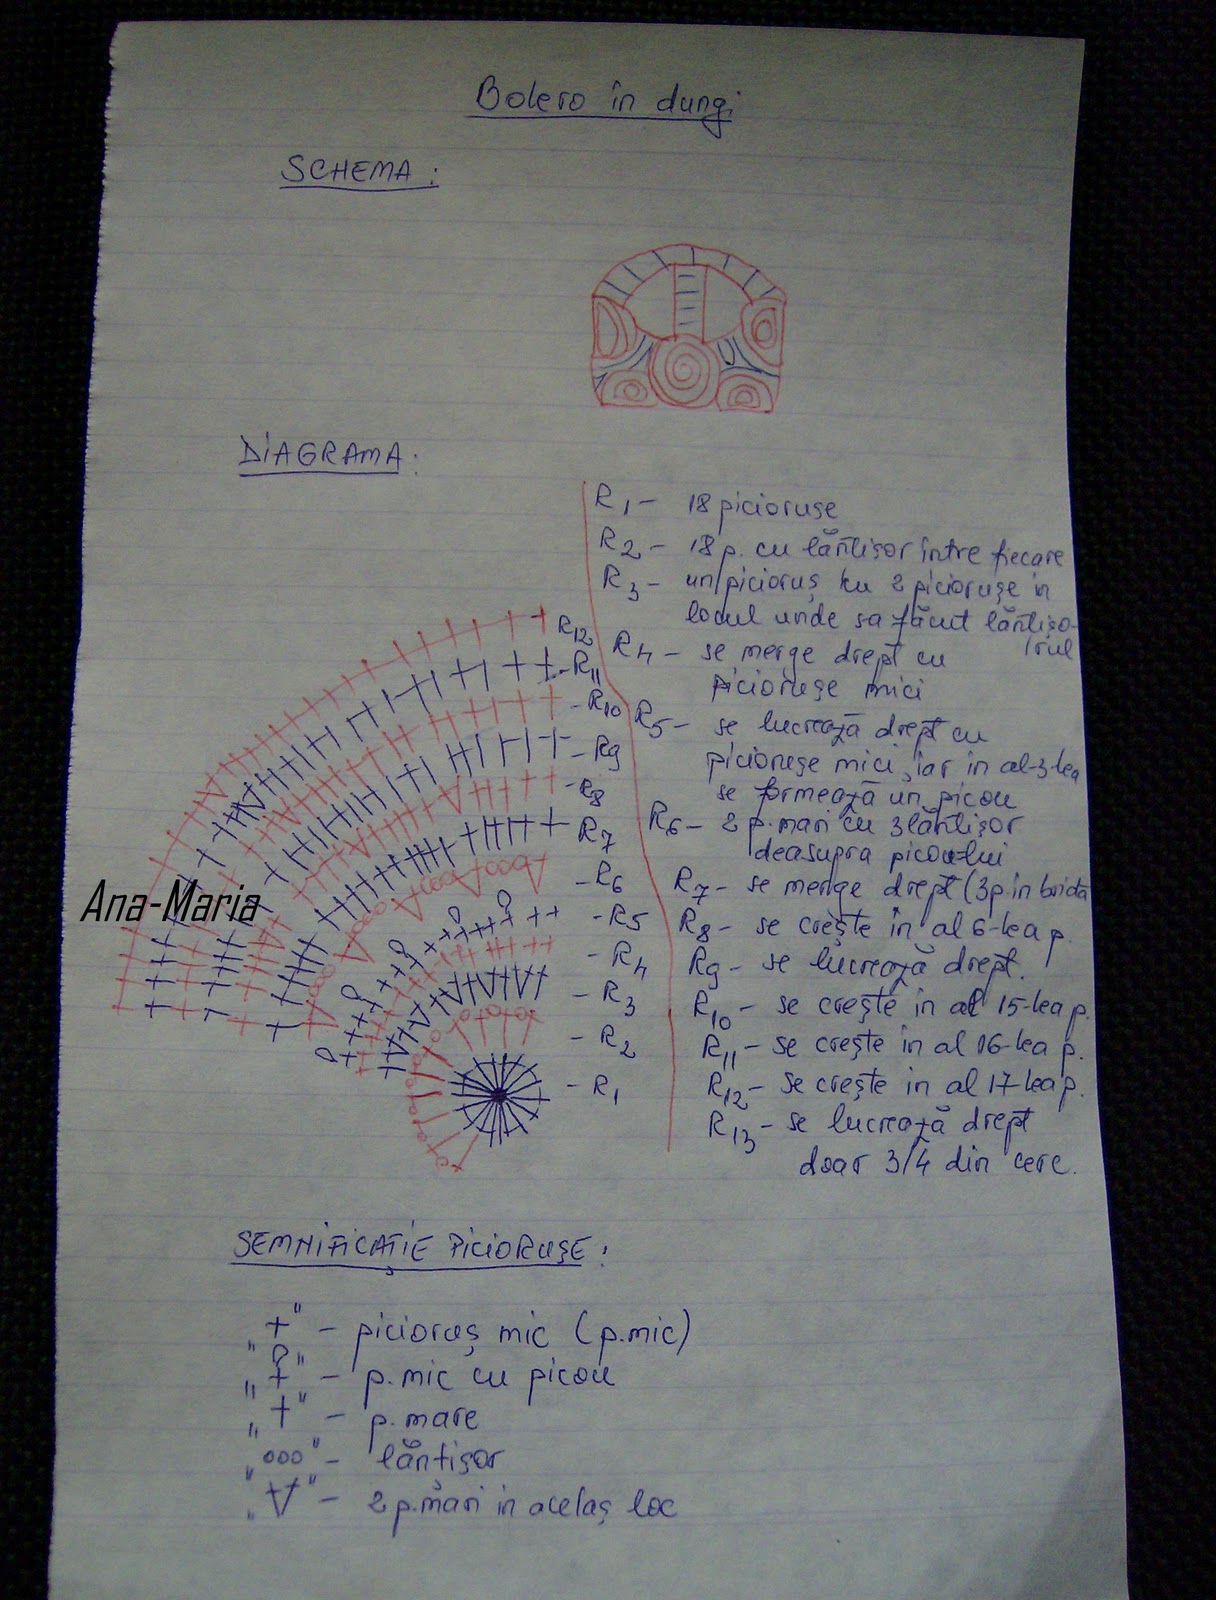 Bolero în dungi
SCHEMA:
DIAGRAMA:
R1 - 18 picioruşe
R2 - 18 p. cu lănţişor între fiecare
R3 - un picioruş cu 2 picioruşe in
locul unde sa făcut lănţişo-
rul
R4 - se merge drept cu
picioruşe mici
R5 - se lucrează drept cu
picioruşe mici, iar in al-3-lea
se formează un picou
R6 - 2 p.mari cu 3 lănţişor
deasupra picou-lui
R7 - se merge drept (3p. in brida
R8 - se creşte in al 6-lea p.
R9 - se lucrează drept.
R10 - se creşte in al 15-lea p.
R11 - se creşte in al 16-lea p.
R12 - se creşte in al 17-lea p.
R13 - se lucrează drept
doar 3/4 din cerc.
R12
R11
- R10
- R9
- R8
R7
- R6
- R5
- R4
- R3
- R2
- R1
Ana-Maria
SEMNIFICAŢIE PICIORUŞE:
„+" - picioruş mic (p.mic)
„+" - p.mic cu picou
„†" - p.mare
„ooo" - lănţişor
„V" - 2 p.mari in acelaş loc